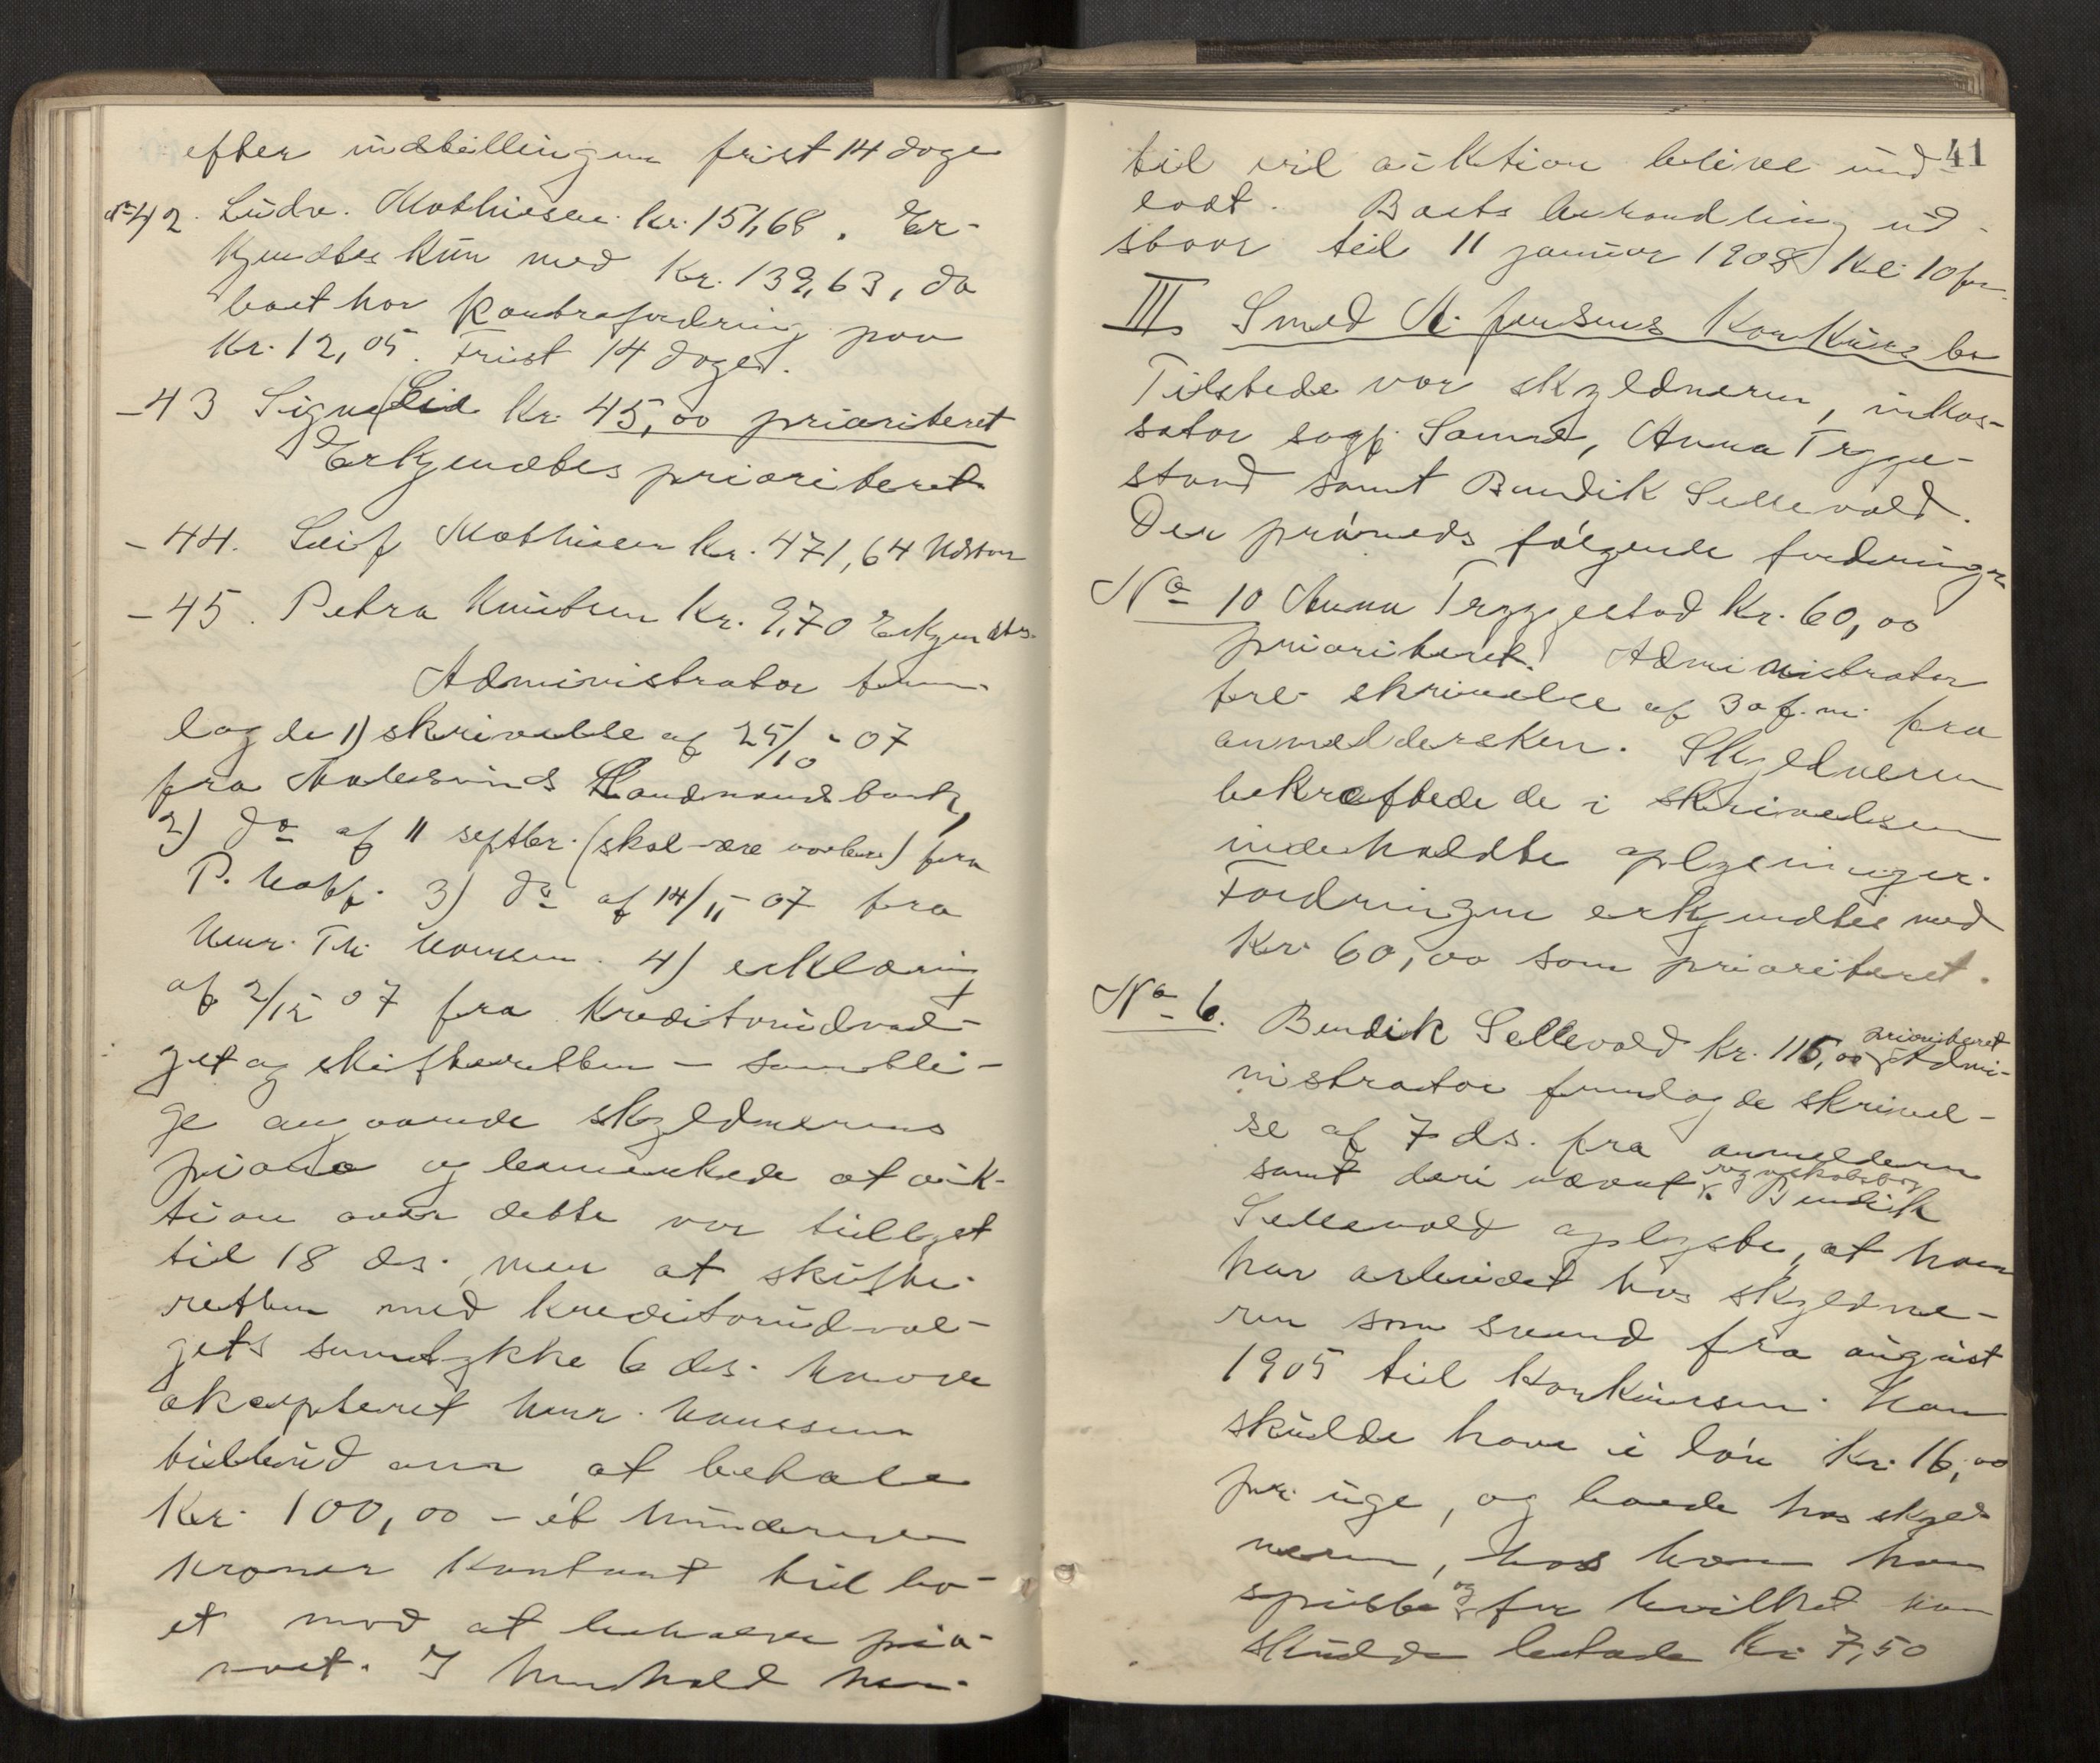 efter indstillingen frist 14 dage
No 42. Ludv. Mathiesen kr. 151,68. Er-
kjendtes kun med kr. 139,63, da
boet har kontrafordring paa
kr. 12,05. Frist 14 dage.
- 43 Signe Lie kr. 45,00 prioriteret
Erkjendtes prioriteret
- 44. Leif Mathiesen kr. 471,64 Udstaar
- 45. Petra Knutsen kr. 9,70 Erkjendtes.
Administrator frem-
lagde 1) skrivelse af 25/10-07
fra Aalesunds Landmandsbank,
2) do af 11 septbr. (skal være novbr.) fra
P. Hoff. 3) do af 14/11-07 fra
Hmr. Th. Hansen. 4) erklæring
af 2/12 07 fra kreditorudval-
get og skifteretten - samtli-
ge angaaende skyldnerens
piano og bemerkede at auk-
tion over dette var tillyst
til 18 ds., men at skifte-
retten med kreditorudval-
gets samtykke 6 ds. havde
akcepteret Hmr. Hansens
tilbud om at betale
Kr. 100,00 - et hundrede
kroner kontant til bo-
et mod at beholde pia-
noet. I henhold her-
41
til vil auktion blive und-
ladt. Boets behandling ud-
staar til 11 januar 1908 kl. 10 fm.
III. Smed A. Jensens Konkursbo
Tilstede var skyldneren, inkas-
sator sagf. Sand, Anna Trygge-
stad samt Bendik Sellevold.
Der prøvedes følgende fordringer
No 10 Anna Tryggestad Kr. 60,00
prioriteret. Administrator
frl. skrivelse af 30 f.m. fra
anmeldersken. Skyldneren
bekræftede de i skrivelsen
indeholdte oplysninger.
Fordringen erkjendtes med
Kr. 60,00 som prioriteret.
No 6. Bendik Sellevold kr. 115,00 prioriteret Admi-
nistrator fremlagde skrivel-
se af 7 ds. fra anmelderen
samt deri nævnt regnskabsbog. Bendik
Sellevold oplyste, at han
har arbeidet hos skyldne-
ren som svend fra august
1905 til konkursen. Han
skulde have i løn kr. 16,00
pr. uge, og boede hos skyld-
neren, hos hvem han
spiste og for hvilket han
skulde betale kr. 7,50